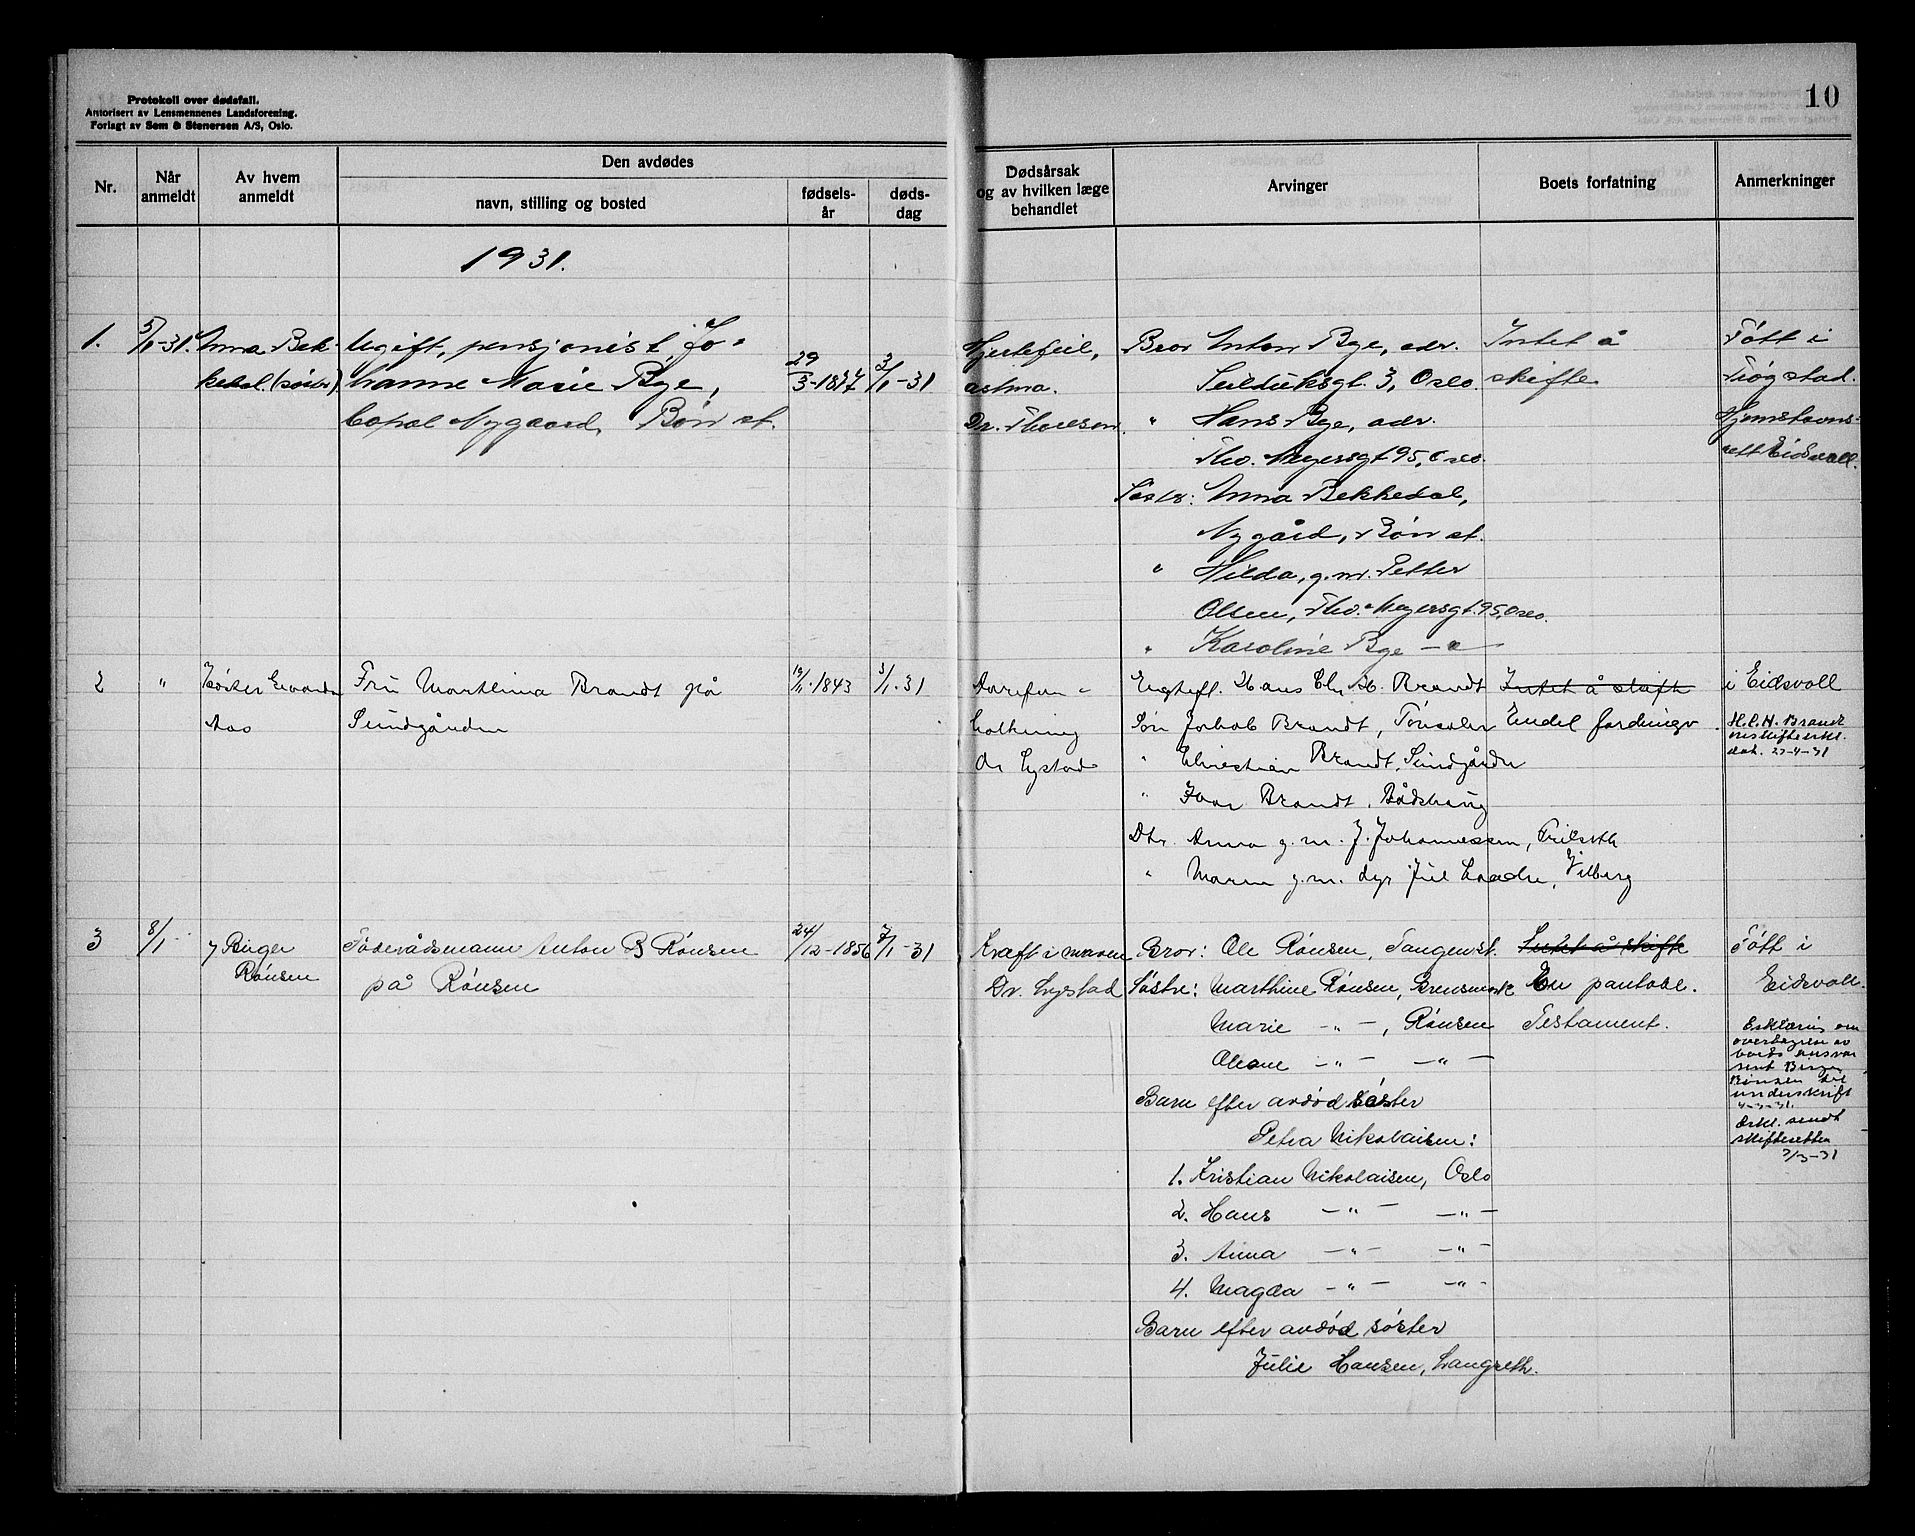 Protokoll over dødsfall.
Autorisert av Lensmennenes Landsforening.
Forlagt av Sem & Stenersen A/S, Oslo.
10
Nr.
Når anmeldt
Av hvem anmeldt
Den avdødes
navn, stilling og bosted
fødselsår
dødsdag
Dødsårsak
og av hvilken læge
behandlet
Arvinger
Boets forfatning
Anmerkninger
1931.
1.
5/1-31.
Anna Bek-
kedal (søster)
Ugift, pensjonist, Jo-
hanne Marie Bye,
Nygaard, Bøn st.
29/3-1877
2/1-31
Hjertefeil,
astma.
Dr. Thoresen
Bror Anton Bye, adr.
Seilduksgt. 3, Oslo.
" Hans Bye, adr.
Thv. Meyersgt 95, Oslo.
Søstr: Anna Bekkedal,
Nygård, Bøn st.
" Hilda, g.m. Petter
Olsen, Thv. Meyersgt. 95, Oslo.
" Karoline Bye — " —
Intet å
skifte
Fött i
Trøgstad.
Hjemstavns-
rett Eidsvoll.
2
"
Aas
Fru Marthina Brandt på
Sundgården
1843
3/1-31
Aarefor-
kalkning
dr Lystad
Hans Chr. Brandt
Søn Jakob Brandt,
" Christian Brandt, Sundgården
" Ivar Brandt, Bådshaug
Dtr. Anna g.m. J. Johannessen,
" Maren g.m. Vilberg
Intet å skifte
Endel fordringer
i Eidsvoll
H.C.H. Brandt
dat. 27-4-31
3
8/1-
Birger
Rønsen
Föderådsmann Anton B Rønsen
på Rønsen
24/12-1856
7/1-31
Kræft i maven
Dr. Lystad
Bror: Ole Rønsen, Tangen st.
Søstre: Marthine Rønsen, Brensmork
Marie — " —, Rønsen
Oleane — " — — " —
Barn efter avdød søster
Petra Nikolaisen:
1. Kristian Nikolaisen, Oslo
2. Hans — " — — " —
3. Anna — " — — " —
4. Magda — " — — " —
Barn efter avdød søster
Julie Hansen, Langseth.
Intet å skifte
En pantobl.
Testament.
Fött i
Eidsvoll.
Erklæring om
overtagelse av
boets ansvar
sent Birger
Rønsen til
underskrift
4-3-31.
Erkl. sendt
skifteretten
7/3-31